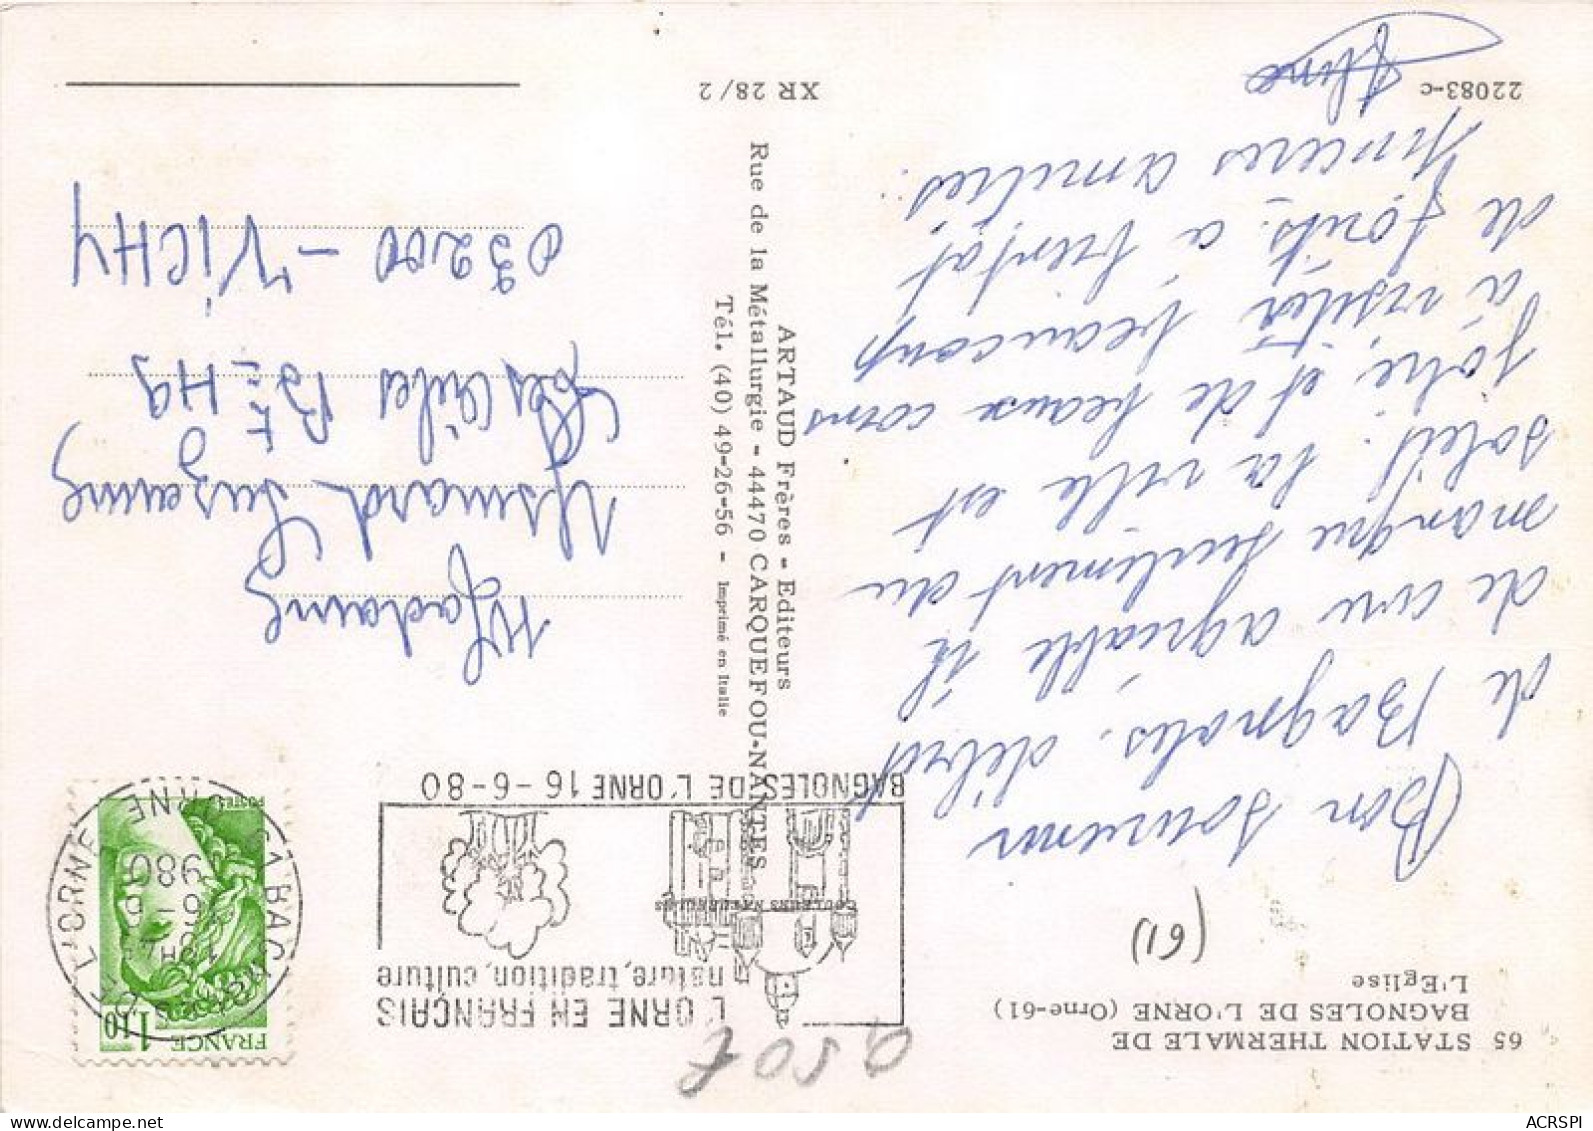 65 STATION THERMALE DE
BAGNOLES DE L'ORNE (Orne-61)
L'Eglise
(61)
Bon souvenir
de Bagnoles, début
de cure agréable il
manque seulement du
soleil. La ville est
jolie, et de beaux coins
à visiter beaucoup
de forêts. a bientot
sinceres amitiés.
22083-c
ARTAUD Frères - Editeurs
Rue de la Métallurgie - 44470 CARQUEFOU-NANTES
Tél. (40) 49-26-56 - Imprimé en Italie
XR 28/2
COULEURS NATURELLES
0,50 €
L'ORNE EN FRANÇAIS
nature, tradition, culture
BAGNOLES DE L'ORNE 16-6-80
FRANCE
1,10
POSTES
61 BAGNOLES DE L'ORNE
ORNE
16-6
1980
Madame
Suzanne
03200 - VICHY
ACRSPI